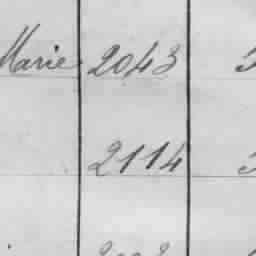 Marie 2043
2114